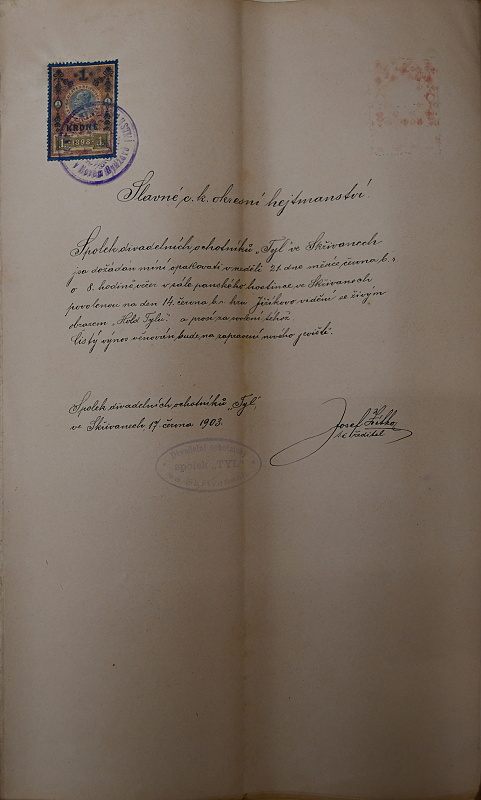 1
KRONE
1 1898 1
Slavné c. k. okresní hejtmanství.
Spolek divadelních ochotníků „Tyl" ve Skřivanech
jsa dožádán míní opakovati v neděli 21. dne měsíce června b. r.
o 8. hodině večer v sále panského hostince ve Skřivanech
povolenou na den 14. června b. r. hru Jiříkovo vidění se živým
obrazem „Hold Tylu", a prosí za svolení téhož.
Čistý výnos věnován bude na zapravení nového jeviště.
Spolek divadelních ochotníků „Tyl"
ve Skřivanech 17. června 1903.
Josef
ředitel
spolek „TYL"